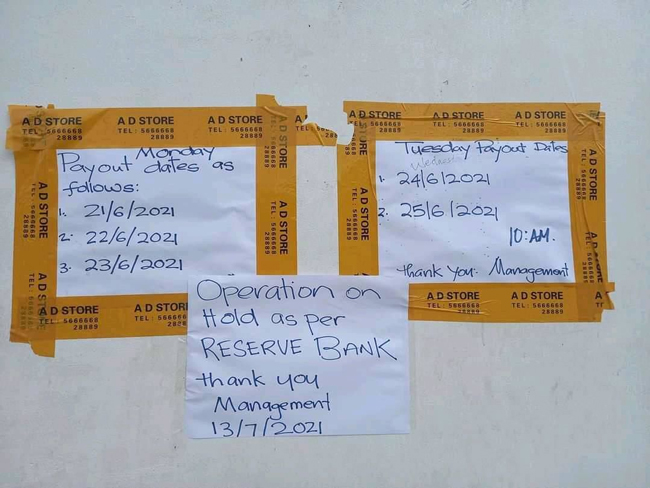 A D STORE
TEL: 5666668
28889
A D STORE
TEL: 5666668
28889
Monday
Payout dates as
follows:
1. 21/6/2021
2. 22/6/2021
3. 23/6/2021
A D STORE
TEL: 5666668
28889
A D STORE
TEL: 5666668
28889
A D STORE
TEL: 5666668
28889
A D STORE
TEL: 5666668
28889
A D STORE
TEL: 5666668
28889
A D STORE
TEL: 5666668
28889
Tuesday Payout Dates
Wednes
1. 24/6/2021
2. 25/6/2021
10:AM.
thank you. Management
A D STORE
TEL: 5666668
28889
A D STORE
TEL: 5666668
28889
A D STORE
TEL: 5666668
28889
Operation on
Hold as per
RESERVE BANK
thank you
Management
13/7/2021